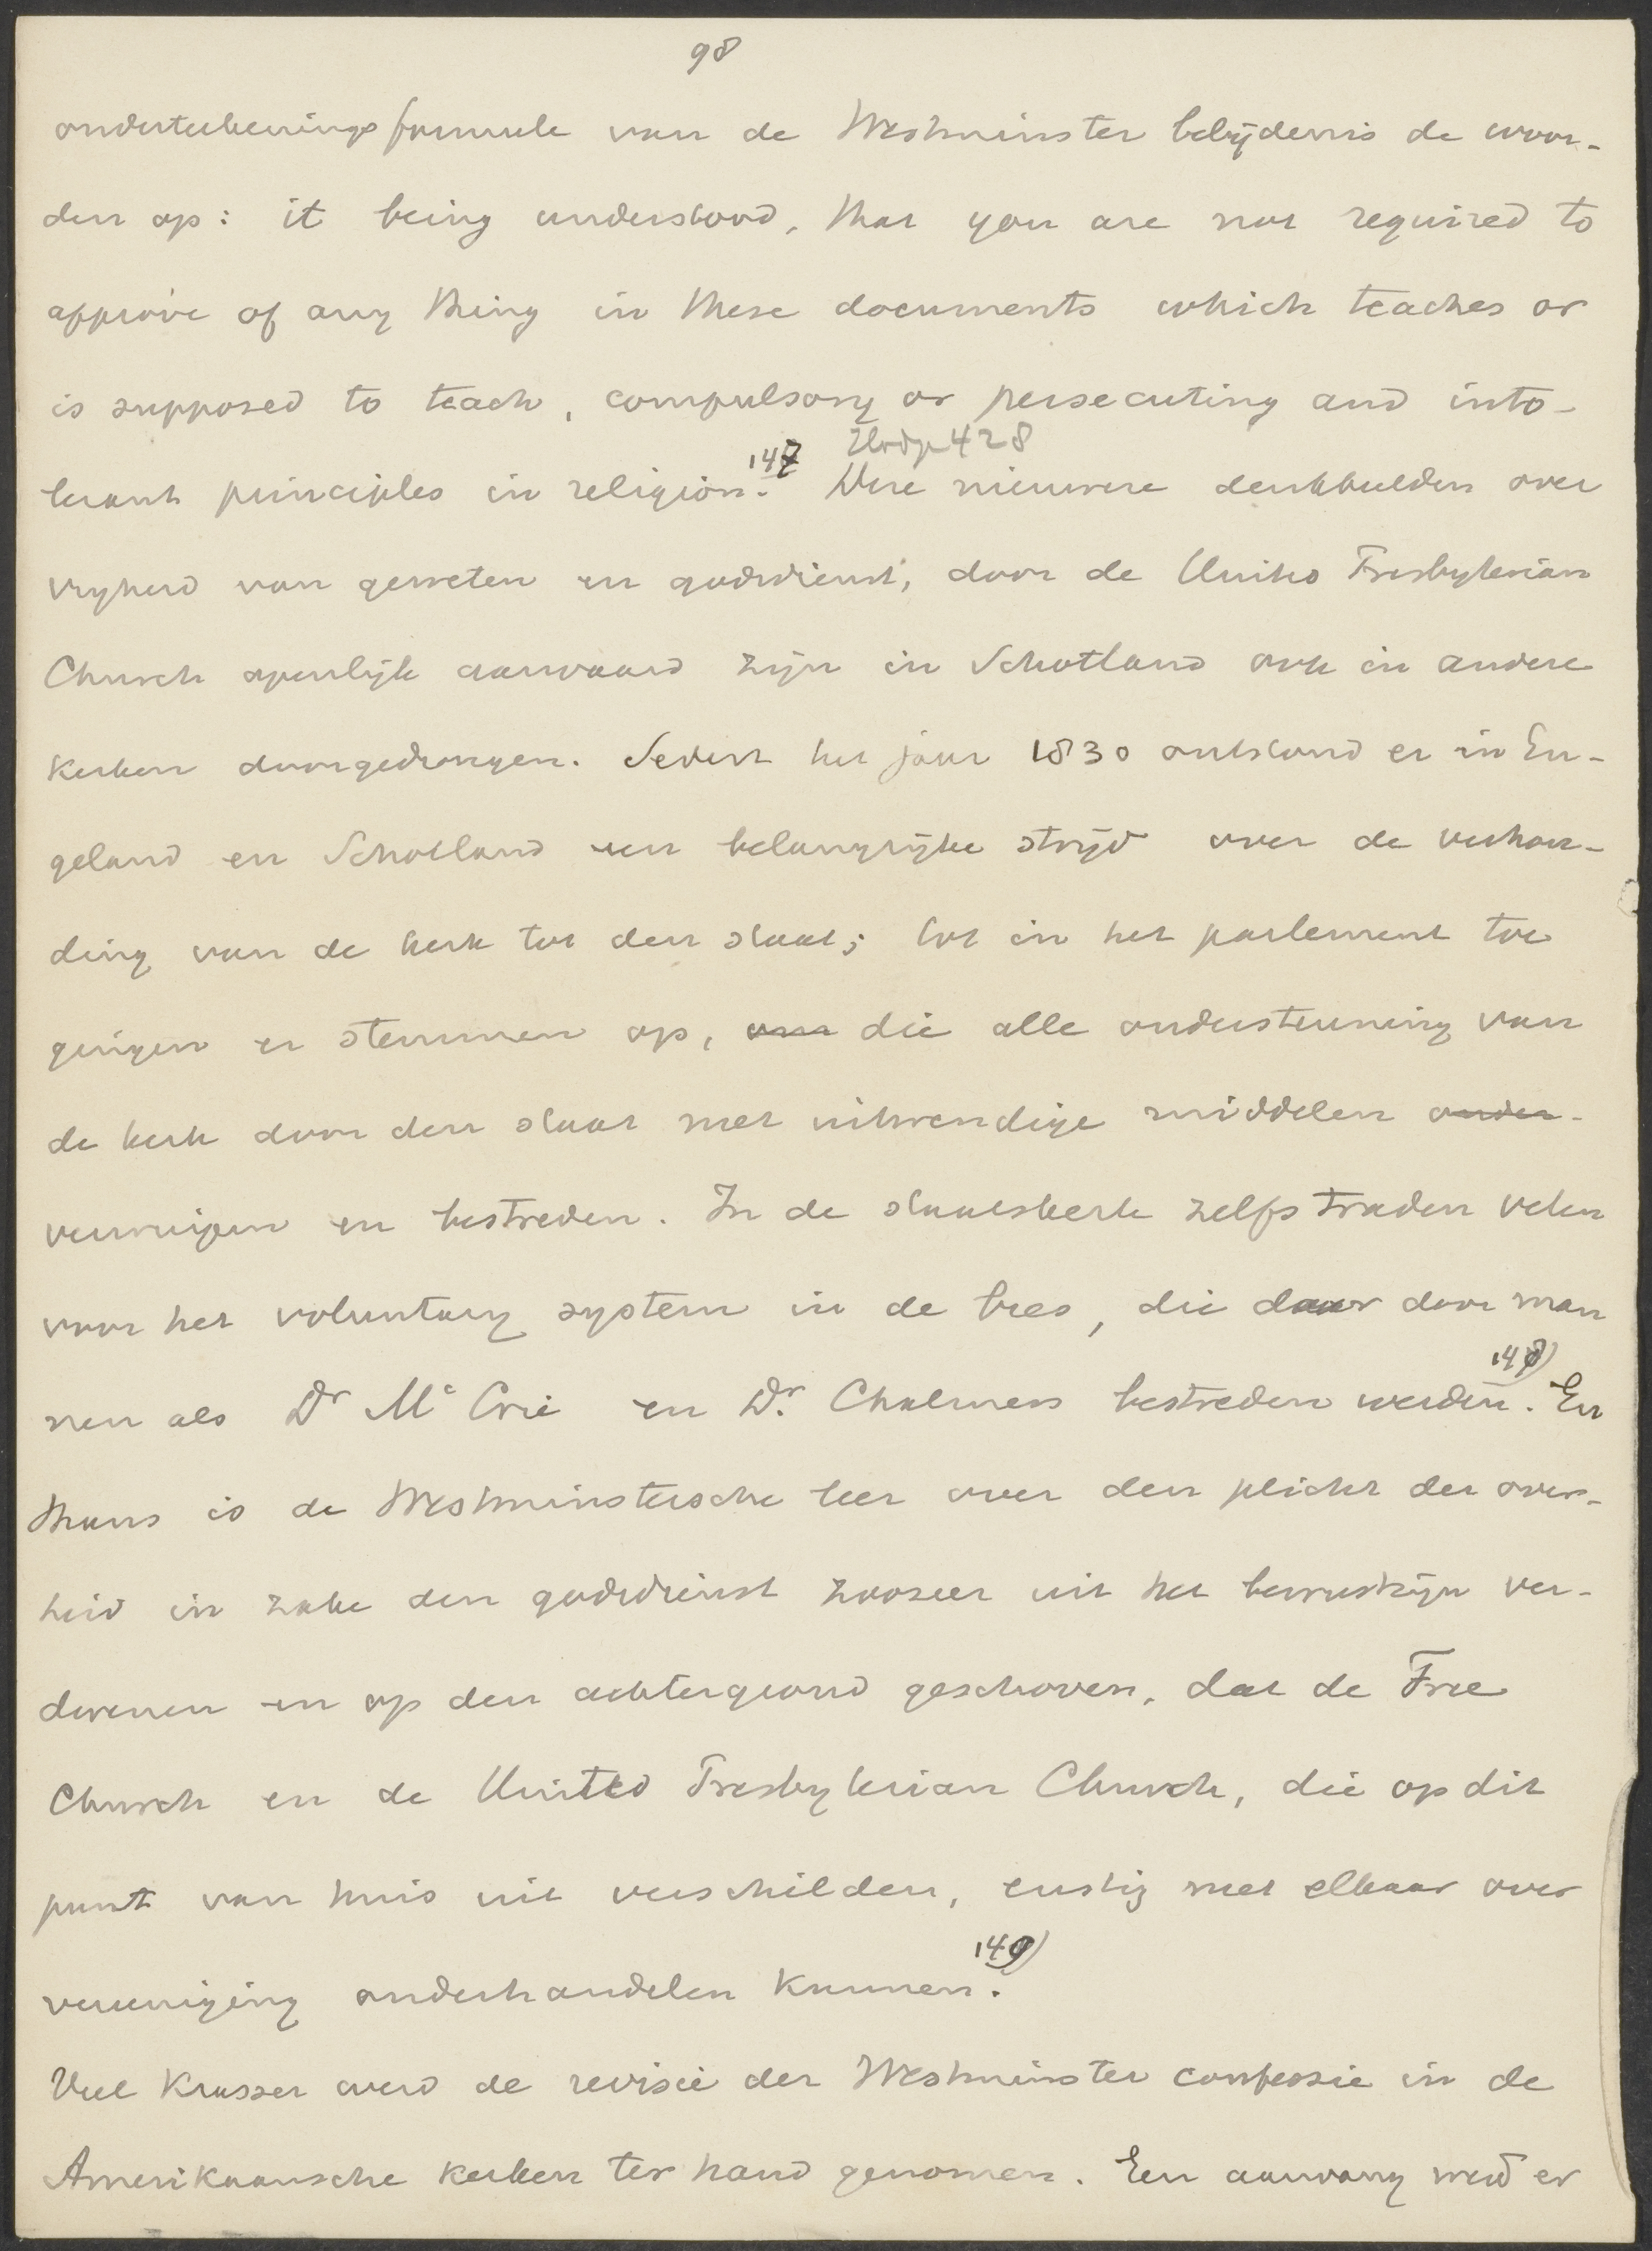 98
onderteekeningsformule van de Westminster belijdenis de woor-
den op: it being understood, that you are not required to
approve of any thing in these documents which teaches or
is supposed to teach, compulsory or persecuting and into-
lerant principles in religion. 147
Deze nieuwere denkbeelden over
vrijheid van geweten en godsdienst, door de United Presbyterian
Church openlijk aanvaard zijn in Schotland ook in andere
kerken doorgedrongen. Sedert het jaar 1830 ontstond er in En-
geland en Schotland een belangrijke strijd over de verhou-
ding van de kerk tot den staat; tot in het parlement toe
gingen er stemmen op, om die alle ondersteuning van
de kerk door den staat met uitwendige middelen onder-
veroordigen en bestreden. In de staatskerk zelfs traden velen
voor het voluntary system in de bres, die daar door man
nen als Dr Mc Crie en Dr. Chalmers bestreden werden. 148) En
thans is de Westminstersche leer over den plicht der over-
heid in zake den godsdienst zoozeer uit het bewustzijn ver-
dwenen en op den achtergrond geschoven, dat de Free
Church en de United Presbyterian Church, die op dit
punt van huis uit verschilden, ernstig met elkaar over
vereeniging onderhandelen kunnen. 149)
Veel krasser werd de revisie der Westminster confessie in de
Amerikaansche kerken ter hand genomen. Een aanvang werd er